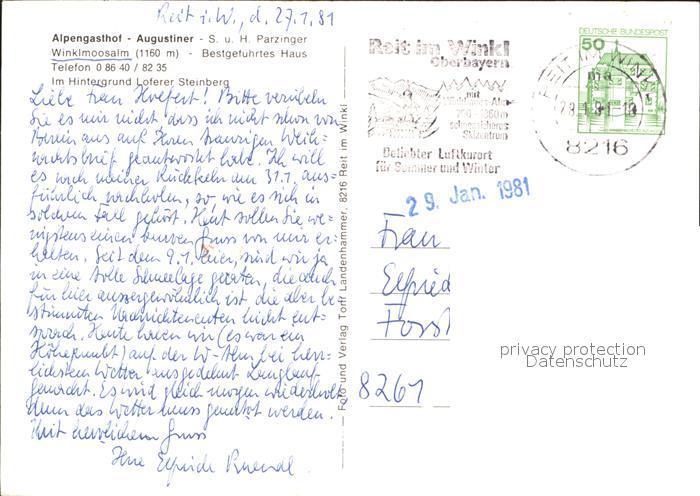 Reit i. W., d. 27.1.81
Alpengasthof - Augustiner - S. u. H. Parzinger
Winklmoosalm (1160 m) - Bestgeführtes Haus
Telefon 0 86 40 / 82 35
Im Hintergrund Loferer Steinberg
Liebe Frau Hoefert! Bitte verübeln
Sie es mir nicht dass ich nicht schon von
aus auf Ihren traurigen Weih-
nachtsbrief geantwortet habe. Ich will
es nach meiner Rückkehr den 31.1. aus-
führlich nachholen, so, wie es sich in
solchem Fall gehört. Heut sollen Sie we-
nigstens einen kurzen Gruss von mir er-
halten. Seit dem 9.1. hier, sind wir ja
in eine tolle Schneelage geraten, die auch
für hier aussergewöhnlich ist die aber be
stimmten nicht ent-
sprach. Heute haben wir (es war ein
Höhepunkt) auf der W-Alm bei herr-
lichstem Wetter ausgedehnt Langlauf
gemacht. Es wird gleich morgen wiederholt
denn das Wetter muss genutzt werden.
Mit herzlichem Gruss
Ihre Elfriede
Foto und Verlag Toni Landenhammer, 8216 Reit im Winkl
Reit im Winkl
Oberbayern
mit
Winklmoos-Alm
schneesicheres
Skizentrum
Beliebter Luftkurort
für Sommer und Winter
DEUTSCHE BUNDESPOST
50
REIT IM WINKL
28.1.81
8216
29. Jan. 1981
Frau
Elfried
Forst
8261
privacy protection
Datenschutz